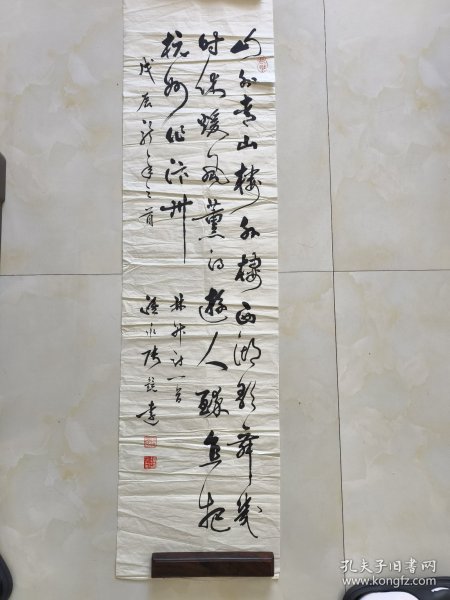 山外青山楼外楼西湖歌舞几
时休暖风薰的游人醉直把
杭州作汴州
戊辰新年之首
林升诗一首
孔夫子旧书网
www.kongfz.com